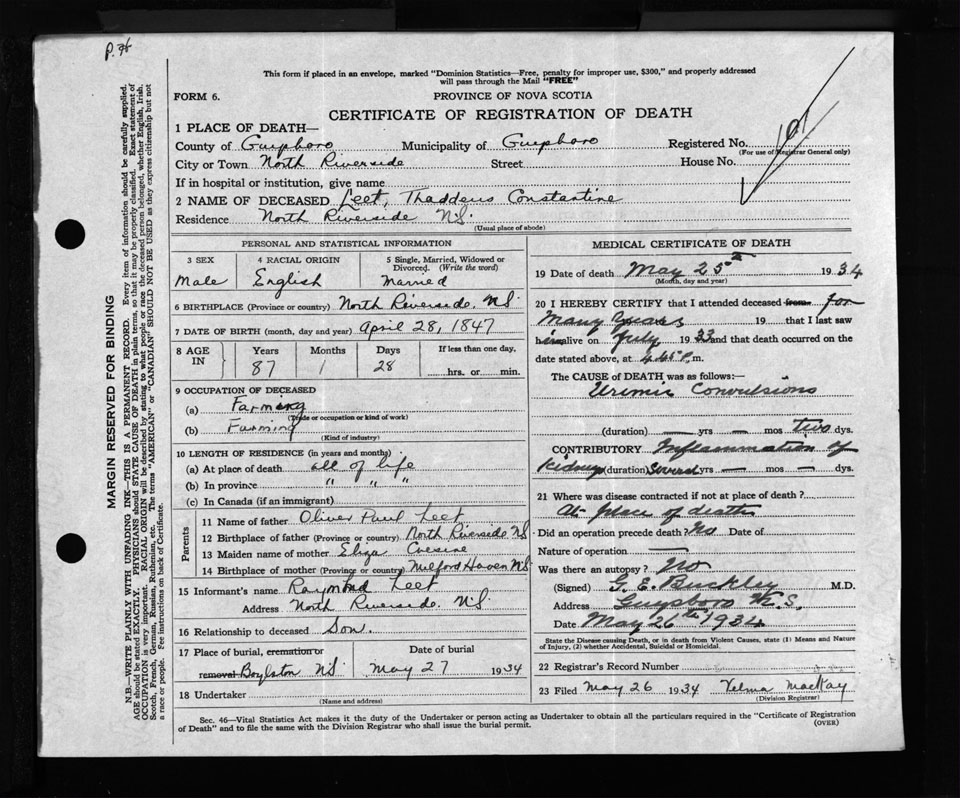 P. 46
This form if placed in an envelope, marked "Dominion Statistics—Free, penalty for improper use, $300," and properly addressed
will pass through the Mail "FREE"
FORM 6.
PROVINCE OF NOVA SCOTIA
CERTIFICATE OF REGISTRATION OF DEATH
1 PLACE OF DEATH—
County of Guysboro Municipality of Guysboro Registered No. 101
(For use of Registrar General only)
City or Town North Riverside Street House No.
If in hospital or institution, give name
2 NAME OF DECEASED Leet, Thaddeus Constantine
Residence North Riverside N.S.
(Usual place of abode)
PERSONAL AND STATISTICAL INFORMATION
3 SEX 4 RACIAL ORIGIN 5 Single, Married, Widowed or
Divorced. (Write the word)
Male English Married
6 BIRTHPLACE (Province or country) North Riverside. N.S.
7 DATE OF BIRTH (month, day and year) April 28, 1847
8 AGE IN Years Months Days If less than one day,
87 1 28 hrs. or min.
9 OCCUPATION OF DECEASED
(a) Farming
(Trade or occupation or kind of work)
(b) Farming
(Kind of industry)
10 LENGTH OF RESIDENCE (in years and months)
(a) At place of death all of life
(b) In province " " "
(c) In Canada (if an immigrant)
Parents
11 Name of father Oliver Paul Leet
12 Birthplace of father (Province or country) North Riverside N.S.
13 Maiden name of mother Eliza
14 Birthplace of mother (Province or country) Milford Haven N.S.
15 Informant's name Raymond Leet
Address North Riverside. N.S.
16 Relationship to deceased Son.
17 Place of burial, cremation or Date of burial
removal Boylston N.S. May 27 1934
18 Undertaker
(Name and address)
MEDICAL CERTIFICATE OF DEATH
19 Date of death May 25th 1934
(Month, day and year)
20 I HEREBY CERTIFY that I attended deceased from for
Many Years 19 that I last saw
him alive on July 1933 and that death occurred on the
date stated above, at 4.45 P. m.
The CAUSE OF DEATH was as follows:—
Uremic Convulsions
(duration) — yrs — mos two dys.
CONTRIBUTORY Inflammation of
Kidney (duration) Several yrs — mos — dys.
21 Where was disease contracted if not at place of death?
At place of death
Did an operation precede death? No Date of
Nature of operation —
Was there an autopsy? No
(Signed) G. E. Buckley M.D.
Address Guysboro N.S.
Date May 26th 1934
State the Disease causing Death, or in death from Violent Causes, state (1) Means and Nature
of Injury, (2) whether Accidental, Suicidal or Homicidal.
22 Registrar's Record Number
23 Filed May 26 1934 Velma MacKay
(Division Registrar)
Sec. 46—Vital Statistics Act makes it the duty of the Undertaker or person acting as Undertaker to obtain all the particulars required in the "Certificate of Registration
of Death" and to file the same with the Division Registrar who shall issue the burial permit.
(OVER)
MARGIN RESERVED FOR BINDING
N.B.—WRITE PLAINLY WITH UNFADING INK—THIS IS A PERMANENT RECORD. Every item of information should be carefully supplied.
AGE should be stated EXACTLY. PHYSICIANS should STATE CAUSE OF DEATH in plain terms, so that it may be properly classified. Exact statement of
OCCUPATION is very important. RACIAL ORIGIN will be described by stating to what people or race the deceased person belonged, whether English, Irish,
Scotch, French, German, Russian, Ruthenian, etc. The terms "AMERICAN" or "CANADIAN" SHOULD NOT BE USED as they express citizenship but not
a race or people. Fee instructions on back of Certificate.